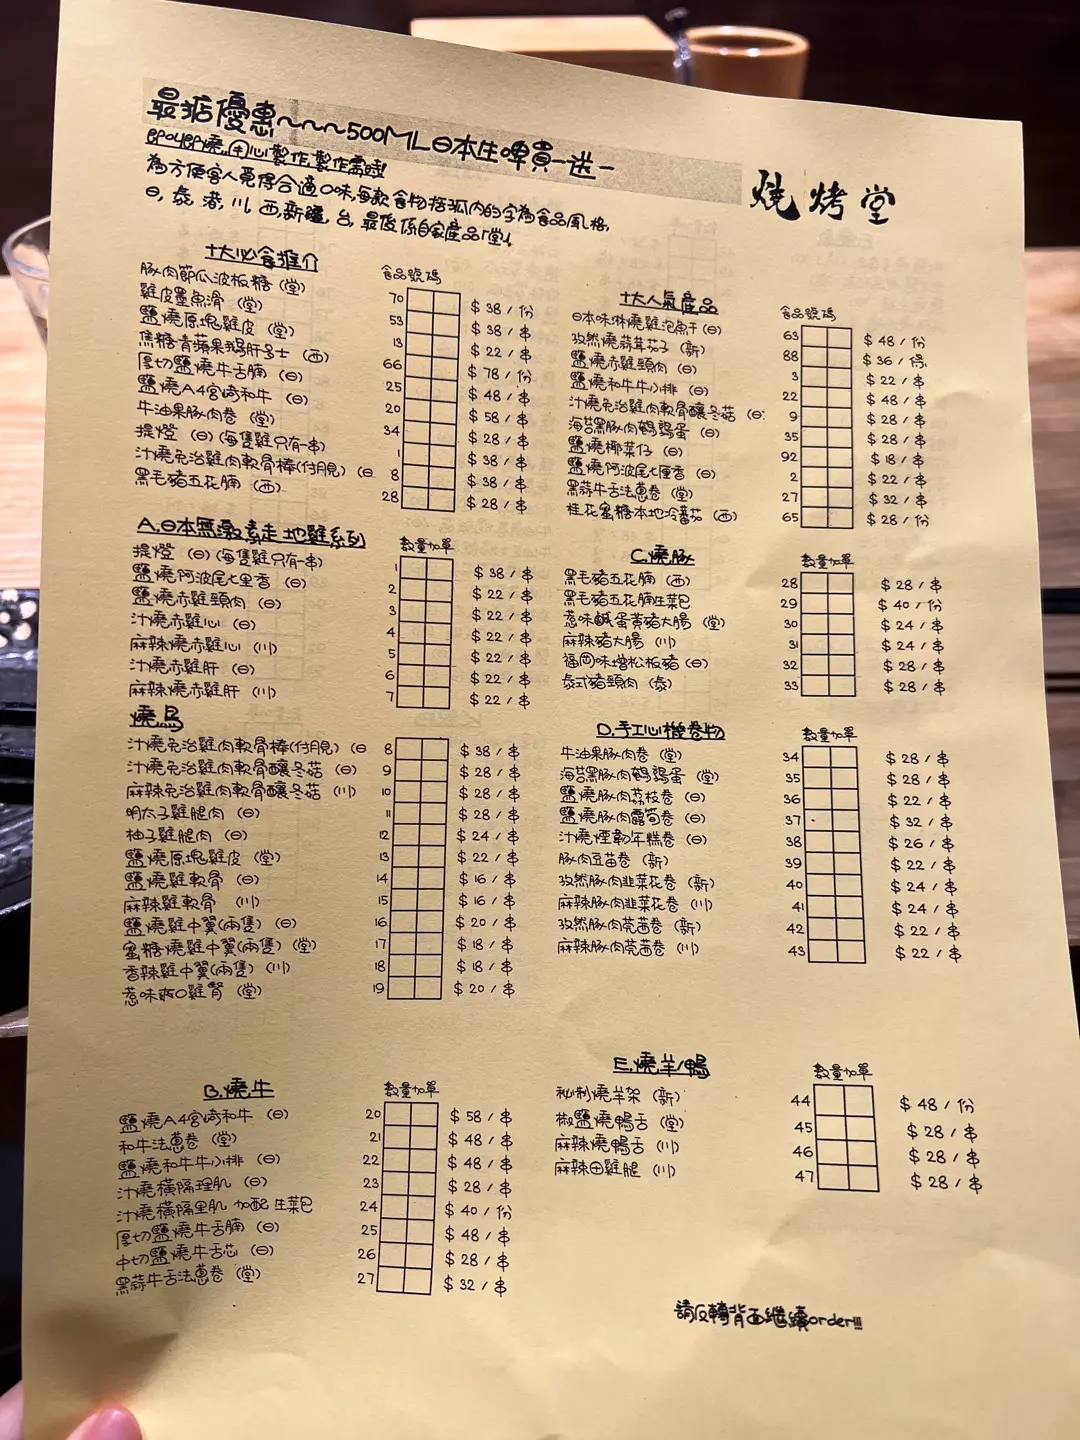 最掂優惠~~~500ML日本生啤買一送一
即叫即燒,用心製作,製作需時!
為方便客人覓得合適口味,每款食物括弧內的字為食品風格,
日, 泰, 港, 川, 西, 新疆, 台, 最後係自家產品「堂」
燒烤堂
十大必食推介 食品號碼
豚肉節瓜波板糖 (堂) 70 $ 38 / 份
雞皮墨魚滑 (堂) 53 $ 38 / 串
鹽燒原塊雞皮 (堂) 13 $ 22 / 串
焦糖青蘋果鵝肝多士 (西) 66 $ 78 / 份
厚切鹽燒牛舌腩 (日) 25 $ 48 / 串
鹽燒A4宮崎和牛 (日) 20 $ 58 / 串
牛油果豚肉卷 (堂) 34 $ 28 / 串
提燈 (日) (每隻雞只有一串) 1 $ 38 / 串
汁燒免治雞肉軟骨棒(付月見) (日 8 $ 38 / 串
黑毛豬五花腩 (西) 28 $ 28 / 串
A.日本無激素走地雞系列 數量加單
提燈 (日) (每隻雞只有一串) 1 $ 38 / 串
鹽燒阿波尾七里香 (日) 2 $ 22 / 串
鹽燒赤雞頸肉 (日) 3 $ 22 / 串
汁燒赤雞心 (日) 4 $ 22 / 串
麻辣燒赤雞心 (川) 5 $ 22 / 串
汁燒赤雞肝 (日) 6 $ 22 / 串
麻辣燒赤雞肝 (川) 7 $ 22 / 串
燒鳥
汁燒免治雞肉軟骨棒(付月見) (日 8 $ 38 / 串
汁燒免治雞肉軟骨釀冬菇 (日) 9 $ 28 / 串
麻辣免治雞肉軟骨釀冬菇 (川) 10 $ 28 / 串
明太子雞腿肉 (日) 11 $ 28 / 串
柚子雞腿肉 (日) 12 $ 24 / 串
鹽燒原塊雞皮 (堂) 13 $ 22 / 串
鹽燒雞軟骨 (日) 14 $ 16 / 串
麻辣雞軟骨 (川) 15 $ 16 / 串
鹽燒雞中翼(兩隻) (日) 16 $ 20 / 串
蜜糖燒雞中翼(兩隻) (堂) 17 $ 18 / 串
香辣雞中翼(兩隻) (川) 18 $ 18 / 串
惹味爽口雞腎 (堂) 19 $ 20 / 串
B.燒牛 數量加單
鹽燒A4宮崎和牛 (日) 20 $ 58 / 串
和牛法蔥卷 (堂) 21 $ 48 / 串
鹽燒和牛牛小排 (日) 22 $ 48 / 串
汁燒橫隔裡肌 (日) 23 $ 28 / 串
汁燒橫隔里肌 加配生菜包 24 $ 40 / 份
厚切鹽燒牛舌腩 (日) 25 $ 48 / 串
中切鹽燒牛舌芯 (日) 26 $ 28 / 串
黑蒜牛舌法蔥卷 (堂) 27 $ 32 / 串
十大人氣產品 食品號碼
日本味淋燒雞泡魚干 (日) 63 $ 48 / 份
孜然燒蒜茸茄子 (新) 88 $ 36 / 條
鹽燒赤雞頸肉 (日) 3 $ 22 / 串
鹽燒和牛牛小排 (日) 22 $ 48 / 串
汁燒免治雞肉軟骨釀冬菇 (日) 9 $ 28 / 串
海苔黑豚肉鵪鶉蛋 (日) 35 $ 28 / 串
鹽燒椰菜仔 (日) 92 $ 18 / 串
鹽燒阿波尾七里香 (日) 2 $ 22 / 串
黑蒜牛舌法蔥卷 (堂) 27 $ 32 / 串
桂花蜜糖本地冷蕃茄 (西) 65 $ 28 / 份
C.燒豚 數量加單
黑毛豬五花腩 (西) 28 $ 28 / 串
黑毛豬五花腩生菜包 29 $ 40 / 份
惹味鹹蛋黃豬大腸 (堂) 30 $ 24 / 串
麻辣豬大腸 (川) 31 $ 24 / 串
福岡味增松板豬 (日) 32 $ 28 / 串
泰式豬頸肉 (泰) 33 $ 28 / 串
D.手工心機卷物 數量加單
牛油果豚肉卷 (堂) 34 $ 28 / 串
海苔黑豚肉鵪鶉蛋 (堂) 35 $ 28 / 串
鹽燒豚肉荔枝卷 (日) 36 $ 22 / 串
鹽燒豚肉露筍卷 (日) 37 $ 32 / 串
汁燒煙韌年糕卷 (日) 38 $ 26 / 串
豚肉豆苗卷 (新) 39 $ 22 / 串
孜然豚肉韭菜花卷 (新) 40 $ 24 / 串
麻辣豚肉韭菜花卷 (川) 41 $ 24 / 串
孜然豚肉芫茜卷 (新) 42 $ 22 / 串
麻辣豚肉芫茜卷 (川) 43 $ 22 / 串
E.燒羊/鴨 數量加單
秘制燒羊架 (新) 44 $ 48 / 份
椒鹽燒鴨舌 (堂) 45 $ 28 / 串
麻辣燒鴨舌 (川) 46 $ 28 / 串
麻辣田雞腿 (川) 47 $ 28 / 串
請反轉背面繼續order!!!